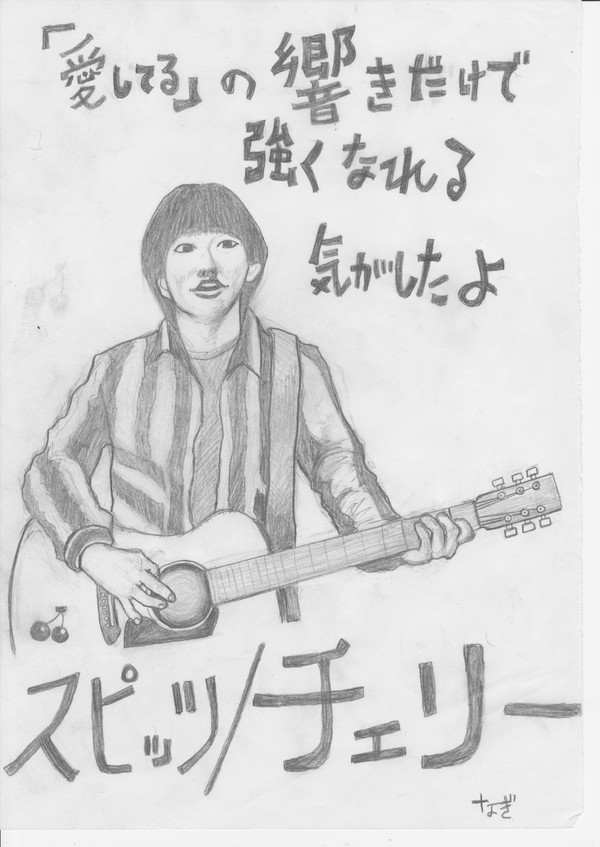 「愛してる」の響きだけで
強くなれる
気がしたよ
スピッツ/チェリー
なぎ